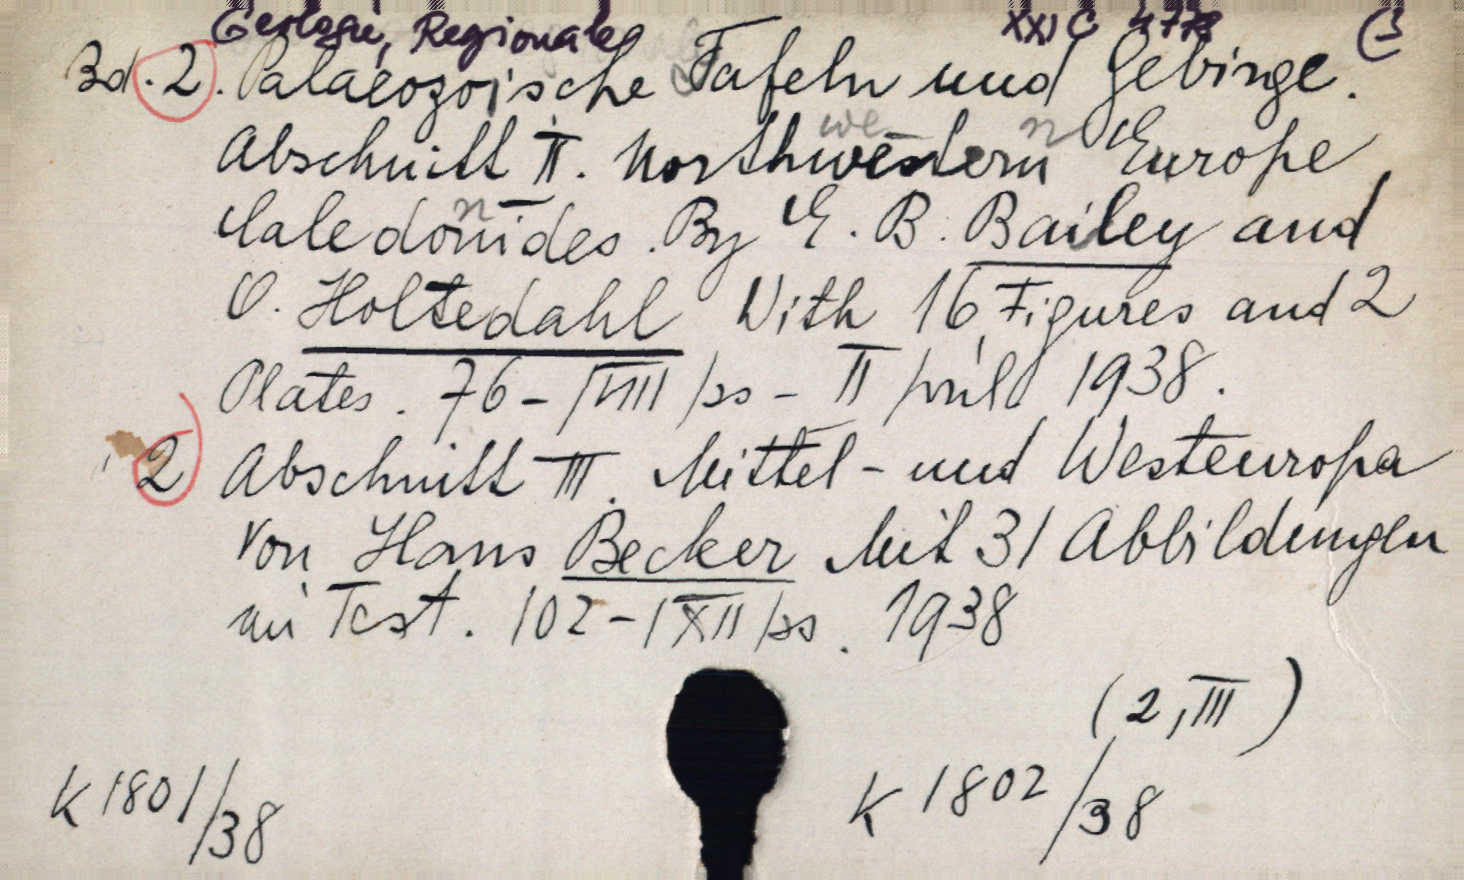 Geologie, Regionale XXI C 4778 (3
Bd. 2. Palaeozoische Tafeln und Gebirge.
Abschnitt II. Northwestern Europe
Caledonides. By E. B. Bailey and
O. Holtedahl With 16 Figures and 2
Plates. 76 - II 1938.
2 Abschnitt III. Mittel- und Westeuropa
Von Hans Becker Mit 31 Abbildungen
im Text. 102 - 1938
(2, III)
K 1801/38 K 1802/38